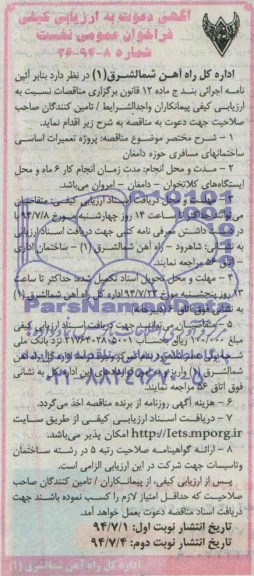 آگهی دعوت به ارزیابی کیفی
فراخوان عمومی نخست
شماره ۸-۹۴-۲۶
اداره کل راه آهن شمالشرق(۱) در نظر دارد بنابر آئین
نامه اجرائی بند ج ماده ۱۲ قانون برگزاری مناقصات نسبت به
ارزیابی کیفی پیمانکاران واجدالشرایط / تامین کنندگان صاحب
صلاحیت جهت دعوت به مناقصه به شرح زیر اقدام نماید.
۱ - شرح مختصر موضوع مناقصه: پروژه تعمیرات اساسی
ساختمانهای مسافری حوزه دامغان
۲ - مدت و محل انجام: مدت زمان انجام کار ۶ ماه و محل
ایستگاه‌های کلاتخوان - دامغان - امروان می‌باشد.
دریافت اسناد ارزیابی کیفی: متقاضیان
می‌توانند حداکثر تا ساعت ۱۴ روز چهارشنبه مورخ ۹۴/۷/۸ با
در دست داشتن معرفی نامه کتبی جهت دریافت اسناد ارزیابی
به نشانی: شاهرود - راه آهن شمالشرق (۱) - ساختمان اداری
- اتاق ۵۶ مراجعه نمایند.
۴ - مهلت و محل تحویل اسناد تکمیل شده: حداکثر تا ساعت
۱۳ روز پنجشنبه مورخ ۹۴/۷/۲۳ اداره کل راه آهن شمالشرق(۱)
به نشانی فوق
۵ - متقاضیان می‌توانند جهت دریافت اسناد ارزیابی کیفی
مبلغ ۱۰۰/۰۰۰ ریال بحساب نزد بانک ملی
شمالشرق(۱) واریز و به قراردادهای این اداره کل به نشانی
فوق اتاق ۵۶ مراجعه نمایند.
۶ - هزینه آگهی روزنامه از برنده مناقصه اخذ می‌گردد.
۷ - دریافت اسناد ارزیابی کیفی از طریق سایت
http://Iets.mporg.ir امکان پذیر می‌باشد.
۸ - ارائه گواهینامه صلاحیت رتبه ۵ در رشته ساختمان
وتاسیسات جهت شرکت در این ارزیابی الزامی است.
پس از ارزیابی کیفی، از پیمانکاران / تامین کنندگان صاحب
صلاحیت که حداقل امتیاز لازم را کسب نموده باشند جهت
دریافت اسناد مناقصه دعوت بعمل خواهد آمد.
تاریخ انتشار نوبت اول: ۹۴/۷/۱
تاریخ انتشار نوبت دوم: ۹۴/۷/۴
اداره کل راه آهن شمالشرق (۱)
ParsNamadData
۰۲۱-۸۸۳۴۹۶۷۰